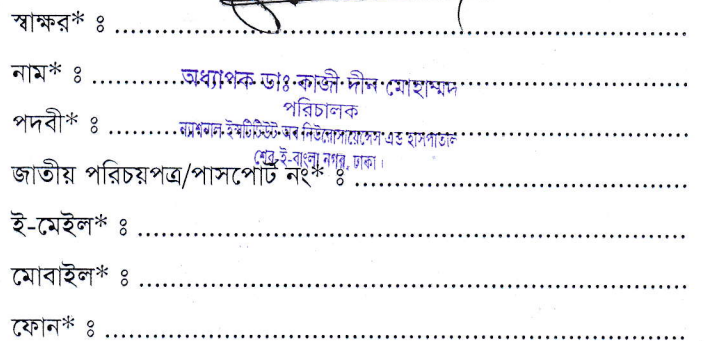 স্বাক্ষর* ঃ ........................................................
নাম* ঃ ........................................................
অধ্যাপক ডাঃ কাজী দীন মোহাম্মদ
পরিচালক
পদবী* ঃ ........................................................
ন্যাশনাল ইন্সটিটিউট অব নিউরোসায়েন্সেস এন্ড হাসপাতাল
শের-ই-বাংলা নগর, ঢাকা।
জাতীয় পরিচয়পত্র/পাসপোর্ট নং* ঃ ........................................................
ই-মেইল* ঃ ........................................................
মোবাইল* ঃ ........................................................
ফোন* ঃ ........................................................